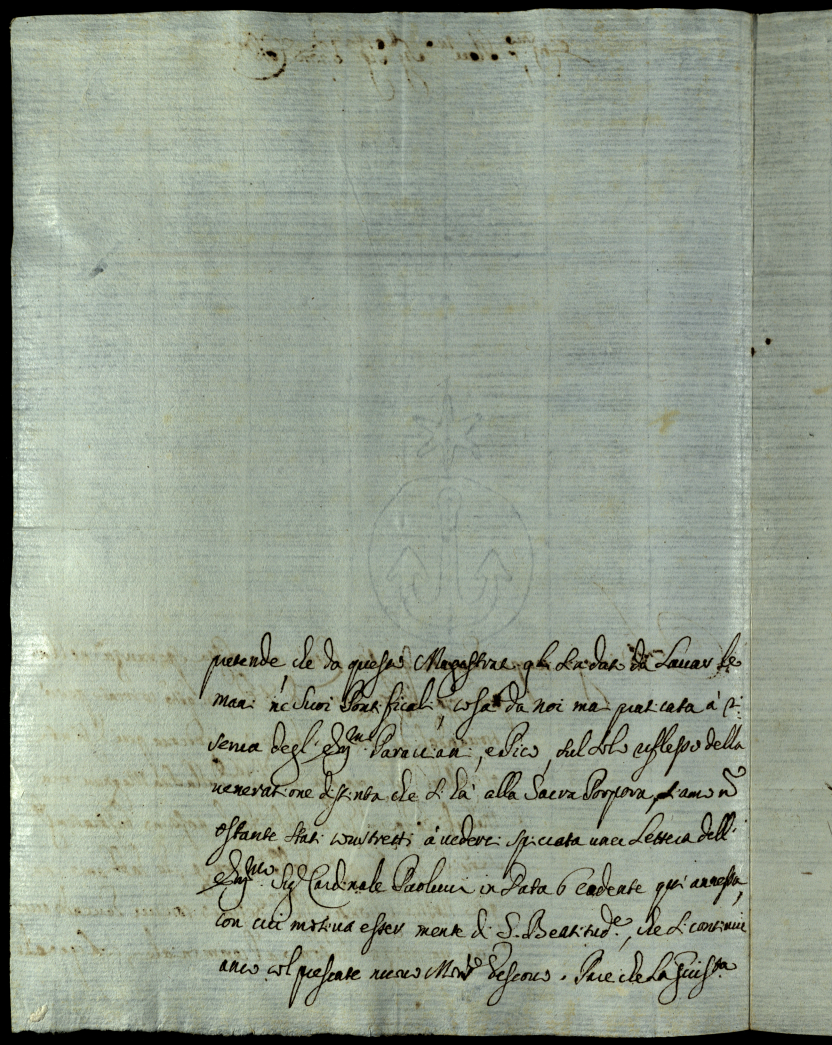 pretende, che da questo Magistrato gli sia dato da Lauar le
mani ne suoi Pontificali, cosa da noi mai praticata à ri:
serua degl' Em.mi Paracciani, e Pico, sul solo riflesso della
ueneratione distinta che si hà alla Sacra Porpora, siamo nõ
ostante stati costretti à uederci spiccata una Lettera dell'
Em.mo Sig.r Cardinale Paolucci in Data 6 cadente qui annessa,
con cui motiua esser mente di S. Beatitud.e, che si continui
anco col presente nuouo Mons.r Vescouo. Pare che la giusta